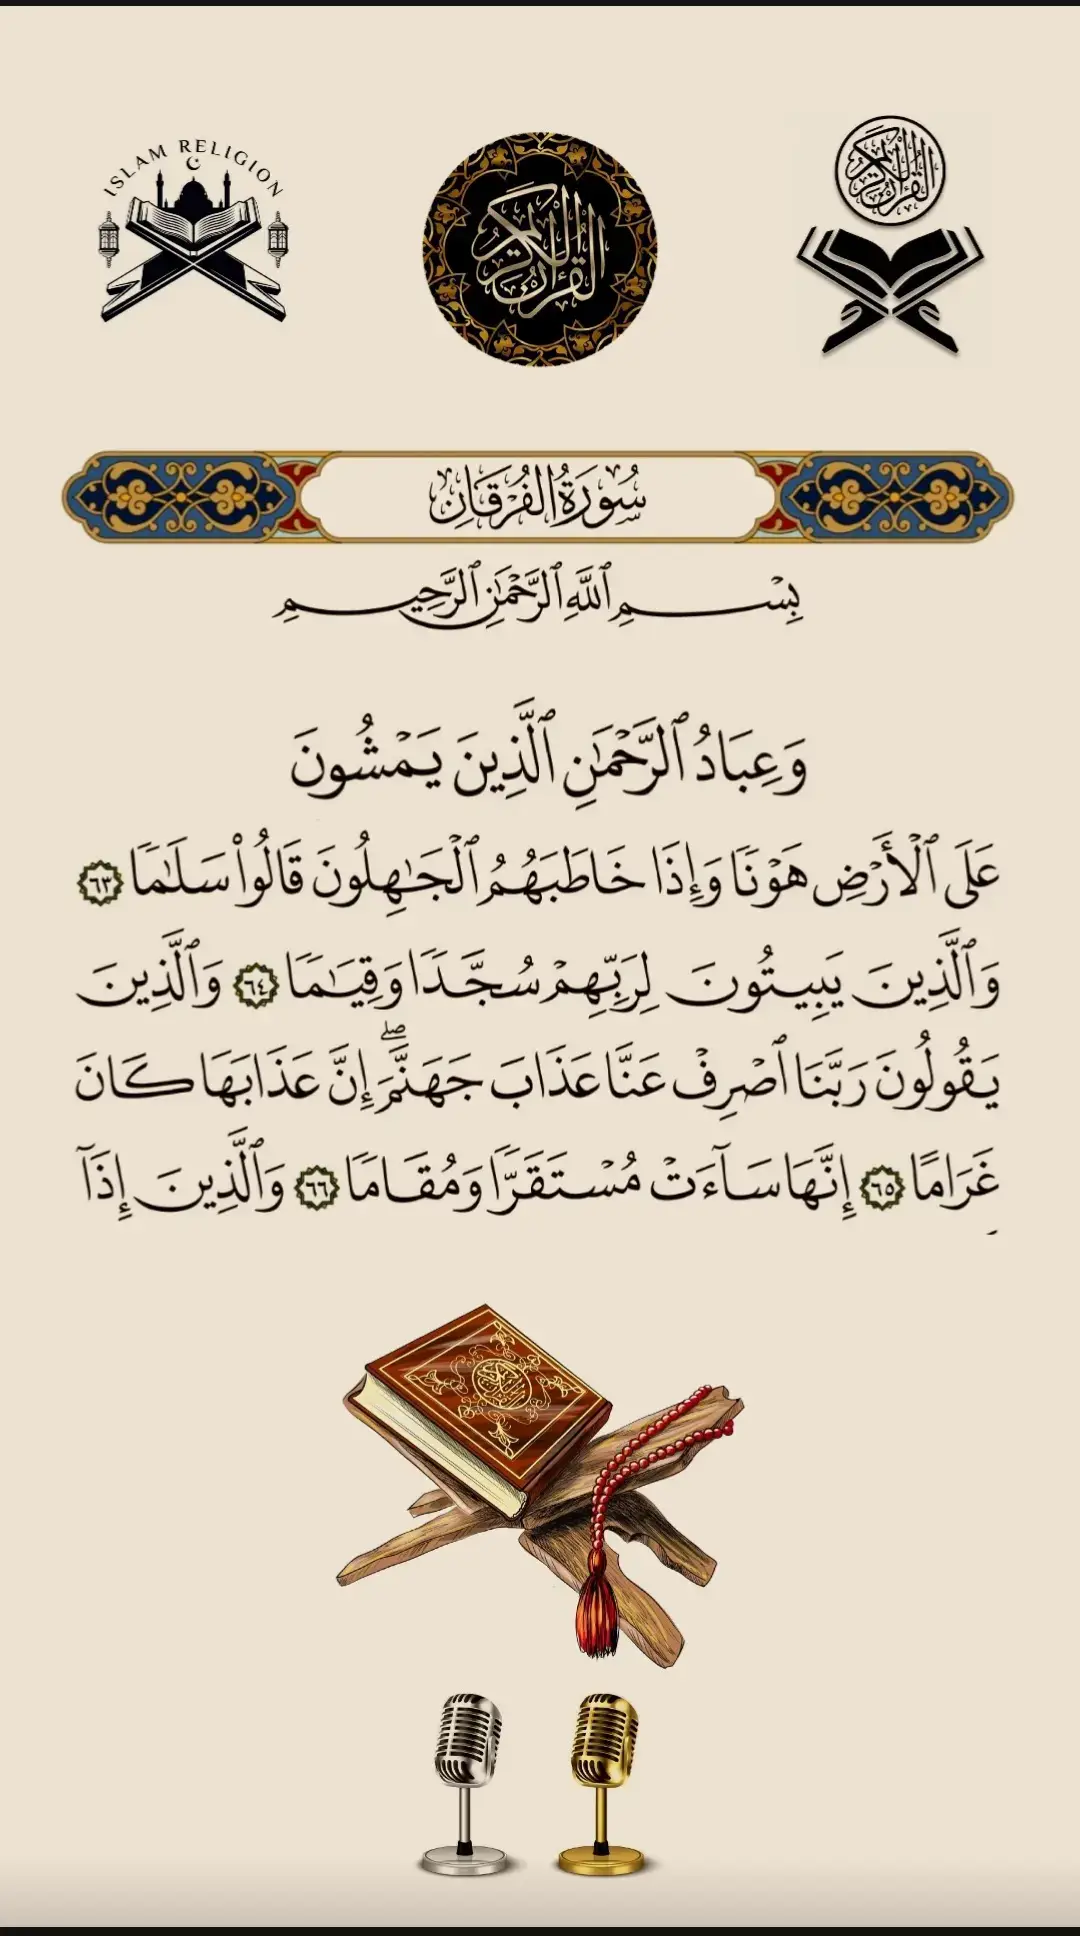 ISLAM RELIGION
القرآن الكريم
القرآن الكريم
سُورَةُ الفُرْقَانِ
بِسْمِ ٱللَّهِ ٱلرَّحْمَٰنِ ٱلرَّحِيمِ
وَعِبَادُ ٱلرَّحْمَٰنِ ٱلَّذِينَ يَمْشُونَ
عَلَى ٱلْأَرْضِ هَوْنًا وَإِذَا خَاطَبَهُمُ ٱلْجَٰهِلُونَ قَالُوا۟ سَلَٰمًا ٦٣
وَٱلَّذِينَ يَبِيتُونَ لِرَبِّهِمْ سُجَّدًا وَقِيَٰمًا ٦٤ وَٱلَّذِينَ
يَقُولُونَ رَبَّنَا ٱصْرِفْ عَنَّا عَذَابَ جَهَنَّمَ ۖ إِنَّ عَذَابَهَا كَانَ
غَرَامًا ٦٥ إِنَّهَا سَآءَتْ مُسْتَقَرًّا وَمُقَامًا ٦٦ وَٱلَّذِينَ إِذَآ